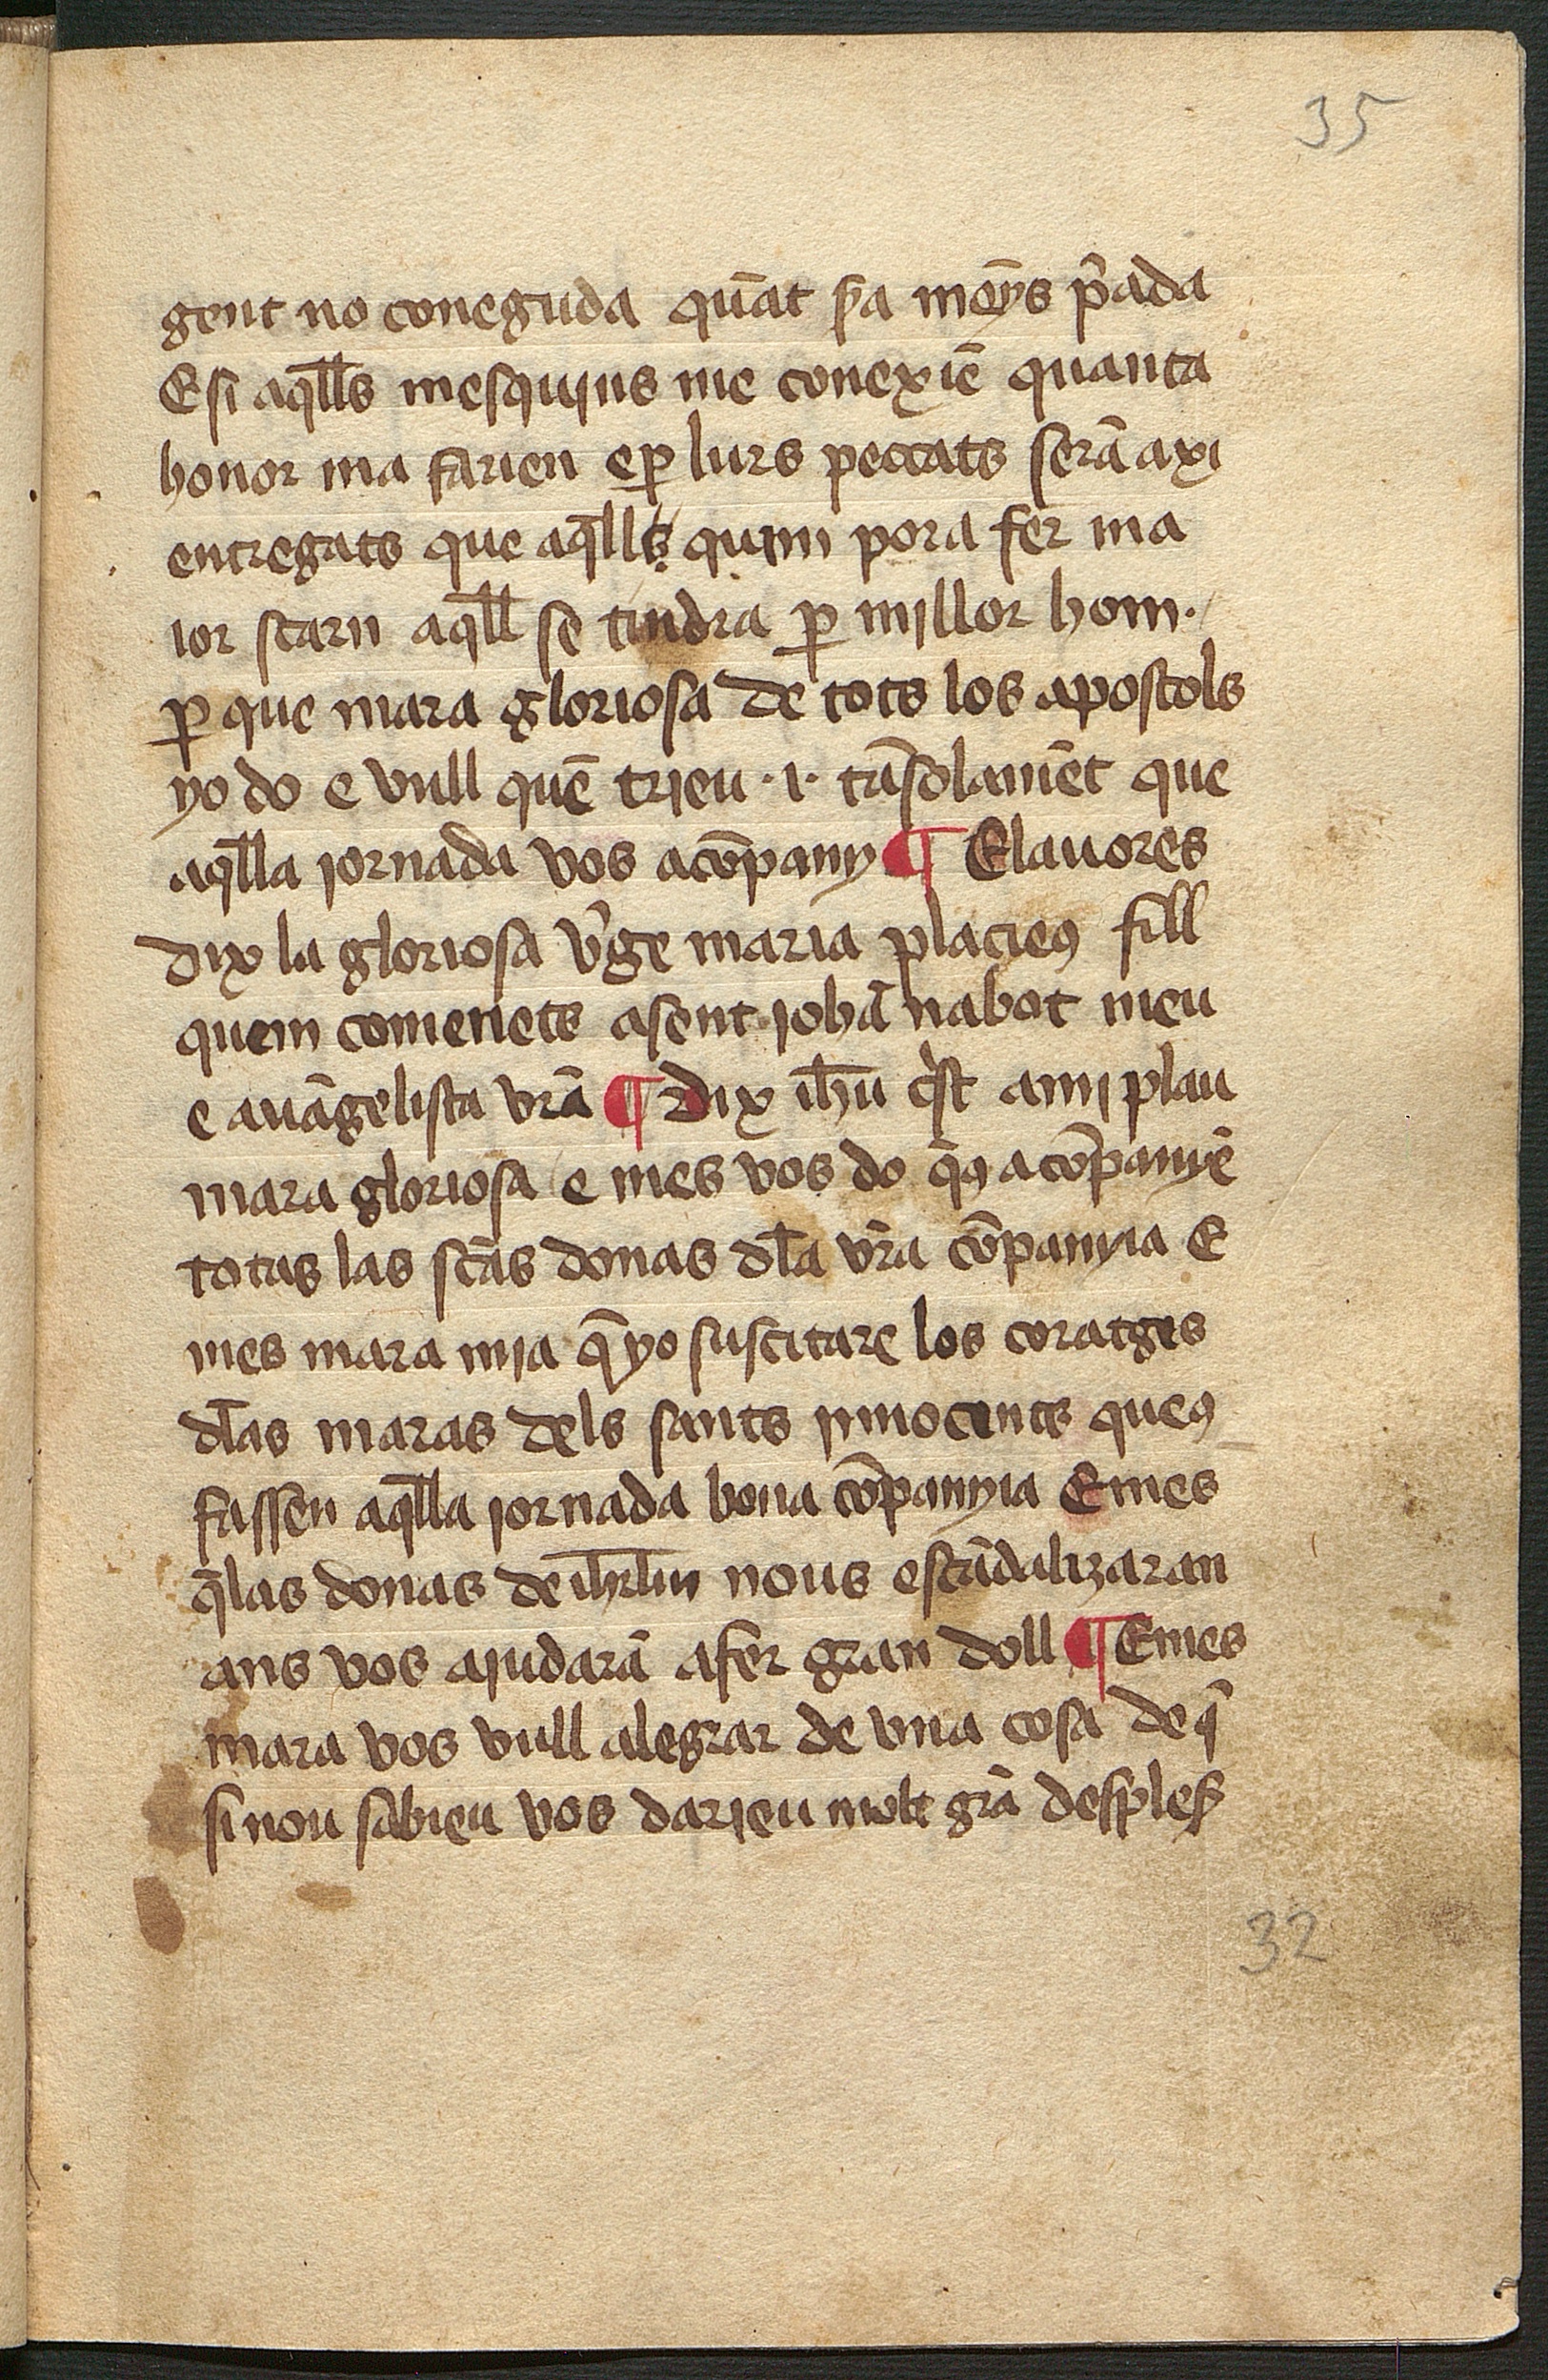 35
gent no coneguda quāt ẜa mēys p̄ada
E si aq̄lls mesquins me conexiē quanta
honor ma farien e ꝑ lurs peccats serā axi
entregats que aq̄lls quim pora fer ma
ior scarn aq̄ll se tindra ꝑ millor hom·/
ꝑ que mara gloriosa de tots los apostols
yo do e vull quē trieu ·i· tāsolamēt que
aq̄lla jornada vos acōpany ¶ E lauores
dix la gloriosa v̄ge maria placieꝯ fill
quem comenets a sent johā nabot meu
e auāgelista vrā ¶ Dix ih̄u c̄st a mj plau
mara gloriosa e mes vos do q̄ꝯ acōpanyē
totas las sc̄as donas dl̄a vr̄a cōpanyia E
mes mara mja q̄ yo suscitare los coratges
dl̄as maras dels sants jnnocents queꝯ
fassen aq̄lla jornada bona cōpanyia E mes
q̄ las donas de ih̄rlm nous escādalizaran
ans vos ajudarā a fer gran doll ¶ E mes
mara vos vull alegrar de vna cosa de q̄
si nou sabieu vos darieu molt grā
32